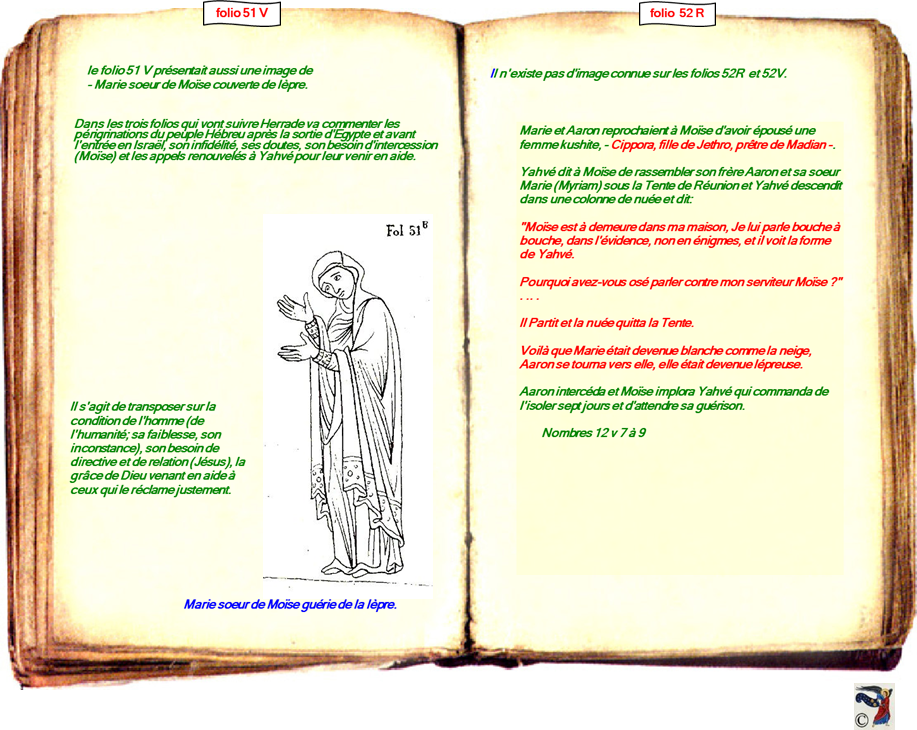 folio 51 V
le folio 51 V présentait aussi une image de
- Marie soeur de Moïse couverte de lèpre.
Dans les trois folios qui vont suivre Herrade va commenter les
périgrinations du peuple Hébreu après la sortie d'Egypte et avant
l'entrée en Israël, son infidélité, ses doutes, son besoin d'intercession
(Moïse) et les appels renouvelés à Yahvé pour leur venir en aide.
Fol 51B
Il s'agit de transposer sur la
condition de l'homme (de
l'humanité; sa faiblesse, son
inconstance), son besoin de
directive et de relation (Jésus), la
grâce de Dieu venant en aide à
ceux qui le réclame justement.
Marie soeur de Moïse guérie de la lèpre.
folio 52 R
Il n'existe pas d'image connue sur les folios 52R et 52V.
Marie et Aaron reprochaient à Moïse d'avoir épousé une
femme kushite, - Cippora, fille de Jethro, prêtre de Madian -.
Yahvé dit à Moïse de rassembler son frère Aaron et sa soeur
Marie (Myriam) sous la Tente de Réunion et Yahvé descendit
dans une colonne de nuée et dit:
"Moïse est à demeure dans ma maison, Je lui parle bouche à
bouche, dans l'évidence, non en énigmes, et il voit la forme
de Yahvé.
Pourquoi avez-vous osé parler contre mon serviteur Moïse ?"
. .. .
Il Partit et la nuée quitta la Tente.
Voilà que Marie était devenue blanche comme la neige,
Aaron se tourna vers elle, elle était devenue lépreuse.
Aaron intercéda et Moïse implora Yahvé qui commanda de
l'isoler sept jours et d'attendre sa guérison.
Nombres 12 v 7 à 9
©